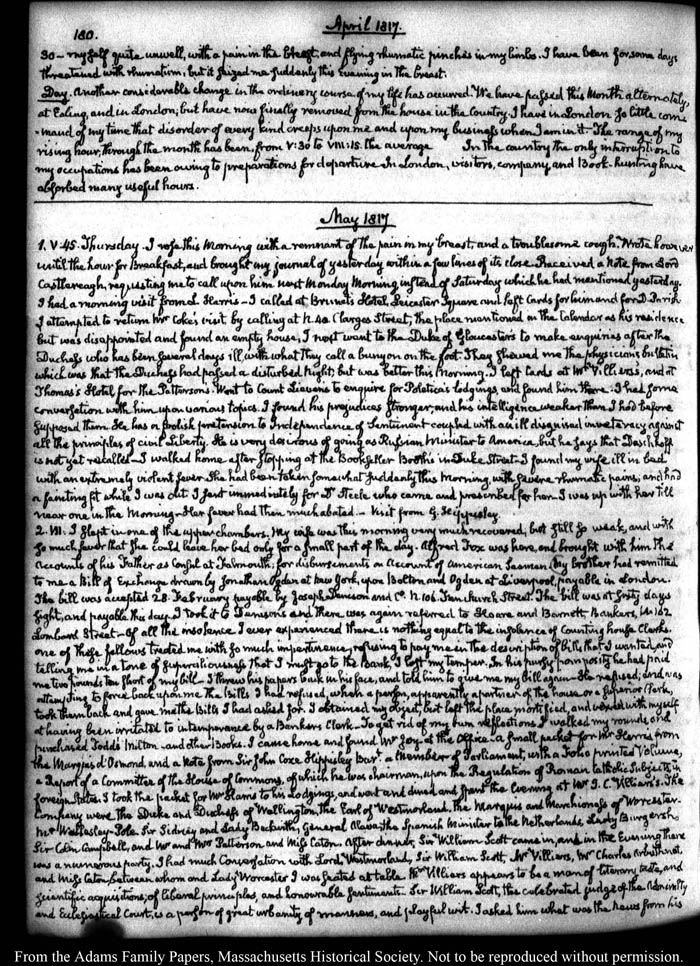 180.
April 1817.
30 — myself quite unwell, with a pain in the breast, and flying rhumatic pinches in my limbs. I have been for some days
threatened with rhumatism, but it seized me suddenly this evening in the breast.
Day. Another considerable change in the ordinary course of my life has occurred. We have passed this Month alternately,
at Ealing, and in London; but have now finally removed from the house in the Country. I have in London so little com-
-mand of my time that disorder of every kind creeps upon me and upon my business when I am in it. The range of my
rising hour, through the month has been, from V:30 to VIII:15. the average In the country the only interruption to
my occupations has been owing to preparations for departure. In London, visitors, company, and Book-hunting have
absorbed many useful hours.
May 1817
1. V:45. Thursday. I rose this Morning with a remnant of the pain in my breast, and a troublesome cough. Wrote however
until the hour for Breakfast, and brought my journal of yesterday within a few lines of its close. Received a Note from Lord
Castlereagh, requesting me to call upon him next Monday Morning instead of Saturday which he had mentioned yesterday.
I had a morning visit from L. Harris — I called at Brunet's Hotel, Leicester Square and left Cards for him and for D. Parish
I attempted to return Mr Coke's visit by calling at N. 40 Clarges Street, the place mentioned in the Calendar as his residence
but was disappointed and found an empty house. I next went to the Duke of Gloucester's to make enquiries after the
Duchess who has been several days ill, with what they call a bunyon on the foot. They shewed me the physicians bulletin
which was that the Duchess had passed a disturbed Night, but was better this Morning. I left Cards at Mr Villiers's, and at
Thomas's Hotel for the Pattersons. Went to Count Lieven's to enquire for Poletica's lodgings, and found him there. I had some
conversation with him upon various topics. I found his prejudices stronger, and his intelligence weaker than I had before
supposed them. He has a foolish pretension to Independence of Sentiment coupled with an ill disguised inveteracy against
all the principles of civil Liberty. He is very desirous of going as Russian Minister to America, but he says that Daschkoff
is not yet recalled — I walked home after stopping at the Bookseller Booth's in Duke Street. I found my wife ill in bed
with an extremely violent fever. She had been taken somewhat suddenly this Morning, with severe rhumatic pains, and had
a fainting fit while I was out. I sent immediately for Dr Steele who came and prescribed for her. I was up with her till
near one in the Morning. Her fever had then much abated. — Visit from G. Hippisley.
2. VII: I slept in one of the upper chambers. My wife was this morning very much recovered, but still so weak, and with
so much fever that she could leave her bed only for a small part of the day. Alfred Fox was here, and brought with him the
Accounts of his Father as Consul at Falmouth, for disbursements on Account of American Seamen. My brother had remitted
to me a Bill of Exchange drawn by Jonathan Ogden at New York, upon Bolton and Ogden at Liverpool, payable in London.
The bill was accepted 28. February payable by Joseph Denison and Co. N. 106. Fenchurch Street. The bill was at sixty days
sight, and payable this day. I took it to Denison's and there was again referred to Hoare and Barnett, Bankers, N. 62
Lombard Street — Of all the insolence I ever experienced there is nothing equal to the insolence of Counting house Clerks.
one of these fellows treated me with so much impertinence, refusing to pay me in the description of bills that I wanted, and
telling me in a tone of superciliousness that I must go to the Bank, I lost my temper. In his pursy pomposity he had paid
me two pounds too short of my bill — I threw his papers back in his face, and told him to give me my bill again — He refused; and was
attempting to force back upon me the Bills I had refused, when a person, apparently a partner of the house or a superior Clerk,
took them back and gave me the Bills I had asked for. I obtained my object, but left the place mortified, and vexed with myself
at having been irritated to intemperance by a Bankers Clerk. To get rid of my own reflections I walked my rounds and
purchased Todd's Milton and other Books. I came home and found Mr Joy at the Office. A small packet for Mr Harris from
the Marquis d'Osmond, and a Note from Sir John Coxe Hippisley Bart. a Member of Parliament, with a Folio printed Volume,
a Report of a Committee of the House of Commons, of which he was chairman, upon the Regulation of Roman Catholic Subjects in
foreign States. I took the packet for Mr Harris to his Lodgings, and went and dined and spent the Evening at Mr J. C. Villiers's. The
company were the Duke and Duchess of Wellington, the Earl of Westmorland, the Marquis and Marchioness of Worcester.
Mr Wellesley-Pole, Sir Sidney and Lady Beckwith, General Alava, the Spanish Minister to the Netherlands, Lady Burgersh,
Sir Colin Campbell, and Mr and Mrs Patterson and Miss Caton. After dinner, Sir William Scott came in, and in the Evening there
was a numerous party. I had much Conversation with Lord Westmorland, Sir William Scott, Mr Villiers, Mr Charles Arbuthnot,
and Miss Caton, between whom and Lady Worcester I was seated at table. Mr Villiers appears to be a man of literary taste, and
scientific acquisitions, of liberal principles, and honourable sentiments. Sir William Scott, the celebrated judge of the Admiralty
and Ecclesiastical Court, is a person of great urbanity of manners, and playful wit. I asked him what was the news from his
From the Adams Family Papers, Massachusetts Historical Society. Not to be reproduced without permission.